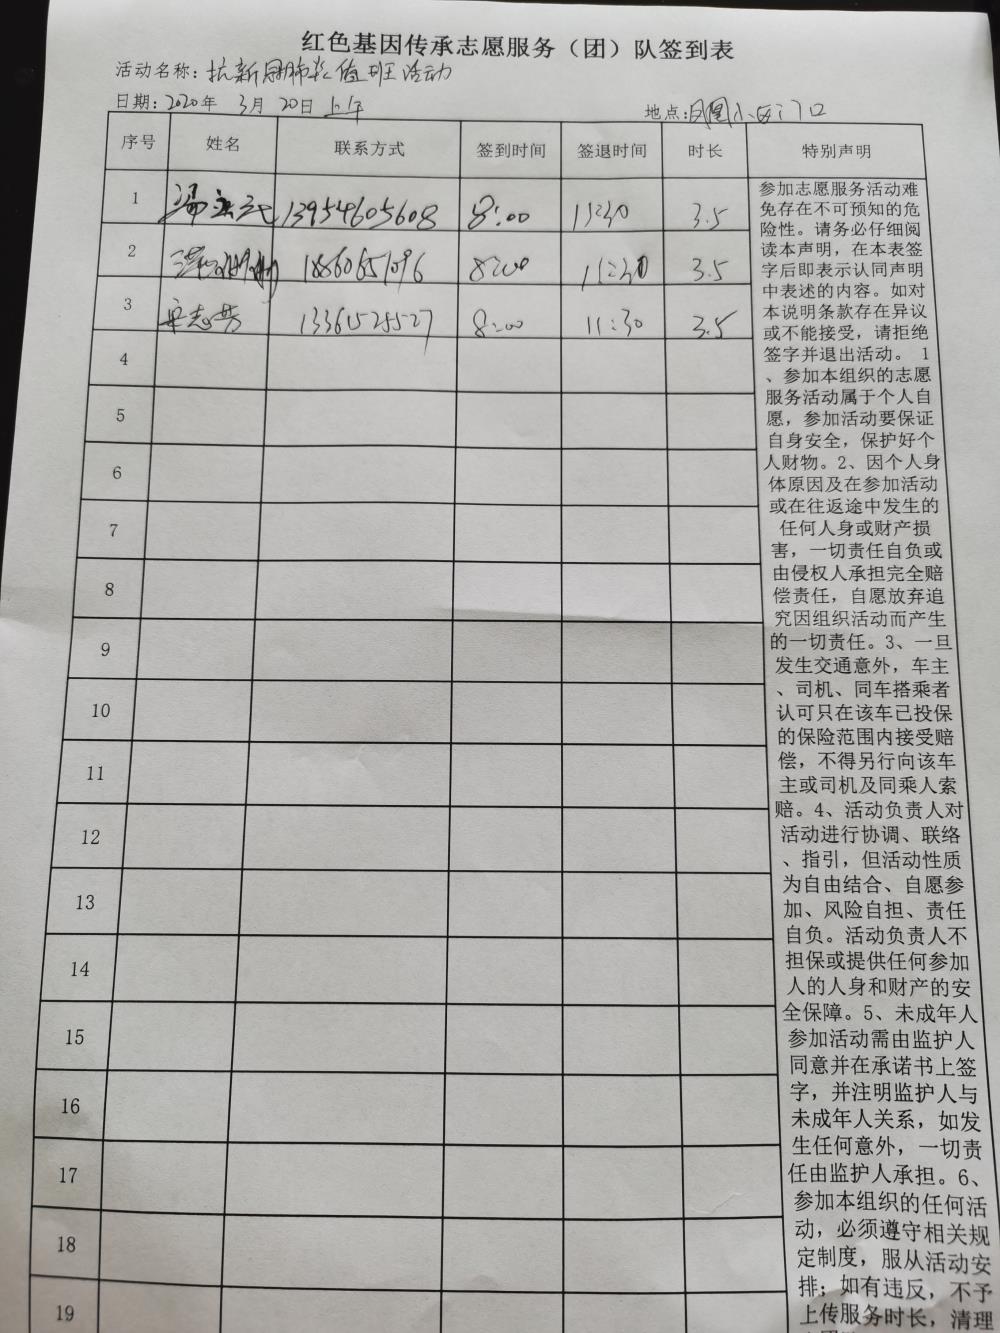 红色基因传承志愿服务（团）队签到表
活动名称：抗新冠肺炎值班活动
日期：2020年 3月 20日 上午
地点：凤凰小区门口
序号 姓名 联系方式 签到时间 签退时间 时长 特别声明
1 13954605608 8:00 11:30 3.5
2 18660651096 8:00 11:30 3.5
3 宋志芳 13361525527 8:00 11:30 3.5
4
5
6
7
8
9
10
11
12
13
14
15
16
17
18
19
参加志愿服务活动难
免存在不可预知的危
险性。请务必仔细阅
读本声明，在本表签
字后即表示认同声明
中表述的内容。如对
本说明条款存在异议
或不能接受，请拒绝
签字并退出活动。 1
、参加本组织的志愿
服务活动属于个人自
愿，参加活动要保证
自身安全，保护好个
人财物。2、因个人身
体原因及在参加活动
或在往返途中发生的
任何人身或财产损
害，一切责任自负或
由侵权人承担完全赔
偿责任，自愿放弃追
究因组织活动而产生
的一切责任。3、一旦
发生交通意外，车主
、司机、同车搭乘者
认可只在该车已投保
的保险范围内接受赔
偿，不得另行向该车
主或司机及同乘人索
赔。4、活动负责人对
活动进行协调、联络
、指引，但活动性质
为自由结合、自愿参
加、风险自担、责任
自负。活动负责人不
担保或提供任何参加
人的人身和财产的安
全保障。5、未成年人
参加活动需由监护人
同意并在承诺书上签
字，并注明监护人与
未成年人关系，如发
生任何意外，一切责
任由监护人承担。6、
参加本组织的任何活
动，必须遵守相关规
定制度，服从活动安
排；如有违反，不予
上传服务时长，清理